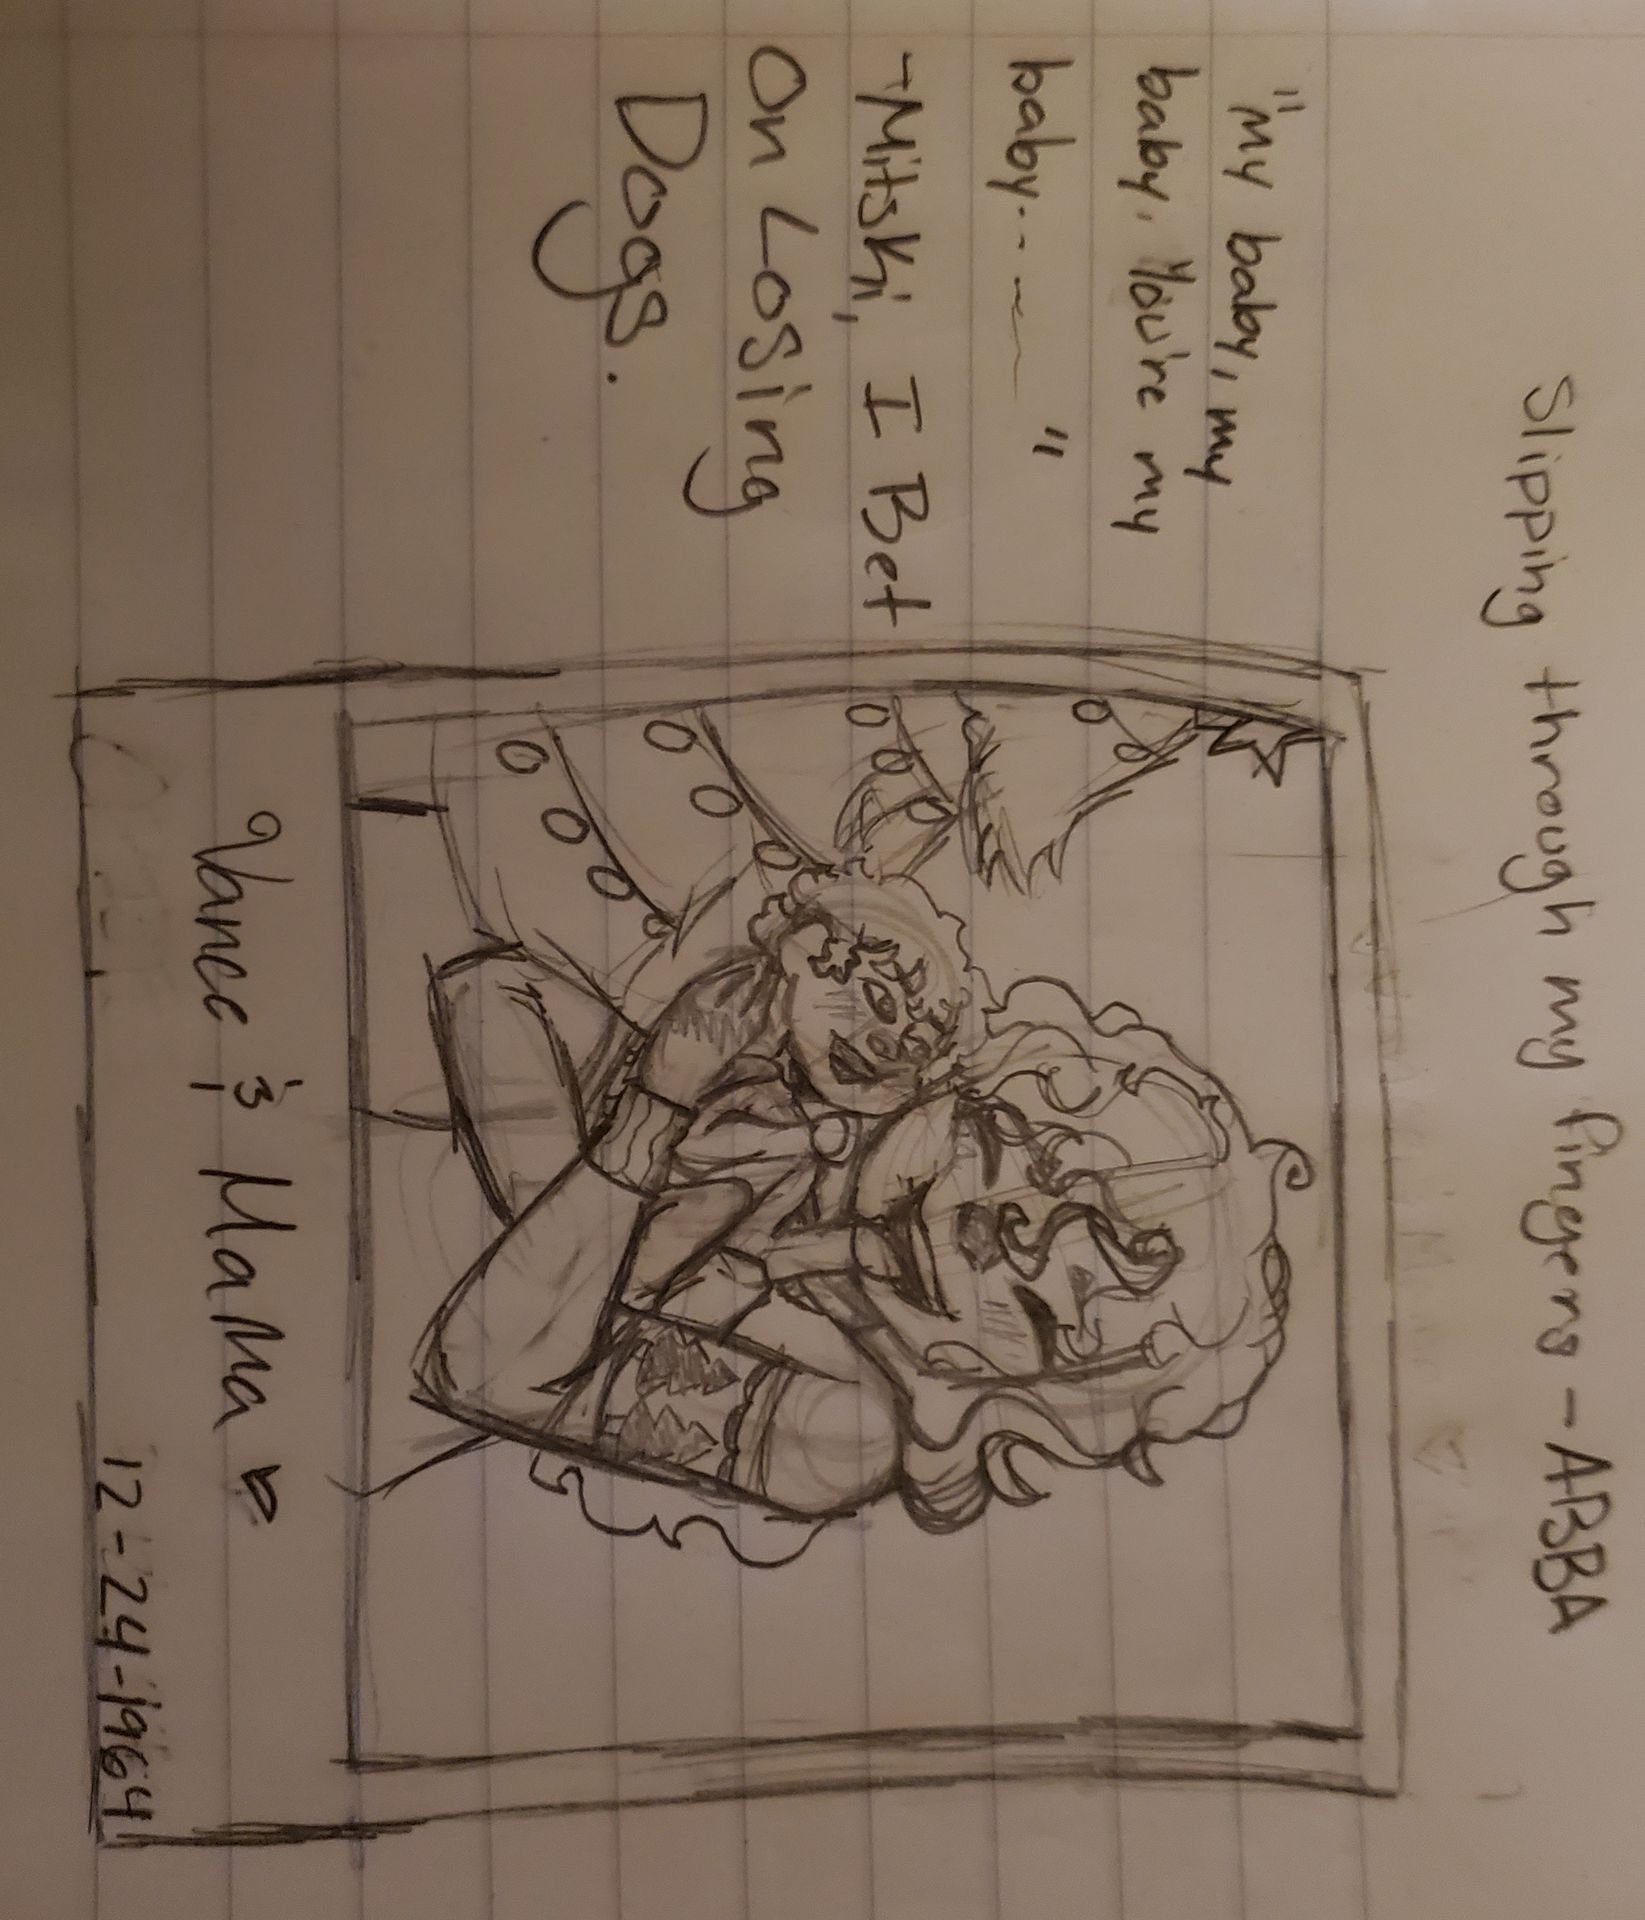 Slipping through my fingers - ABBA
"My baby, my
baby, You're my
baby..---"
-Mitski, I Bet
On Losing
Dogs.
Vance & Mama
12-24-1964